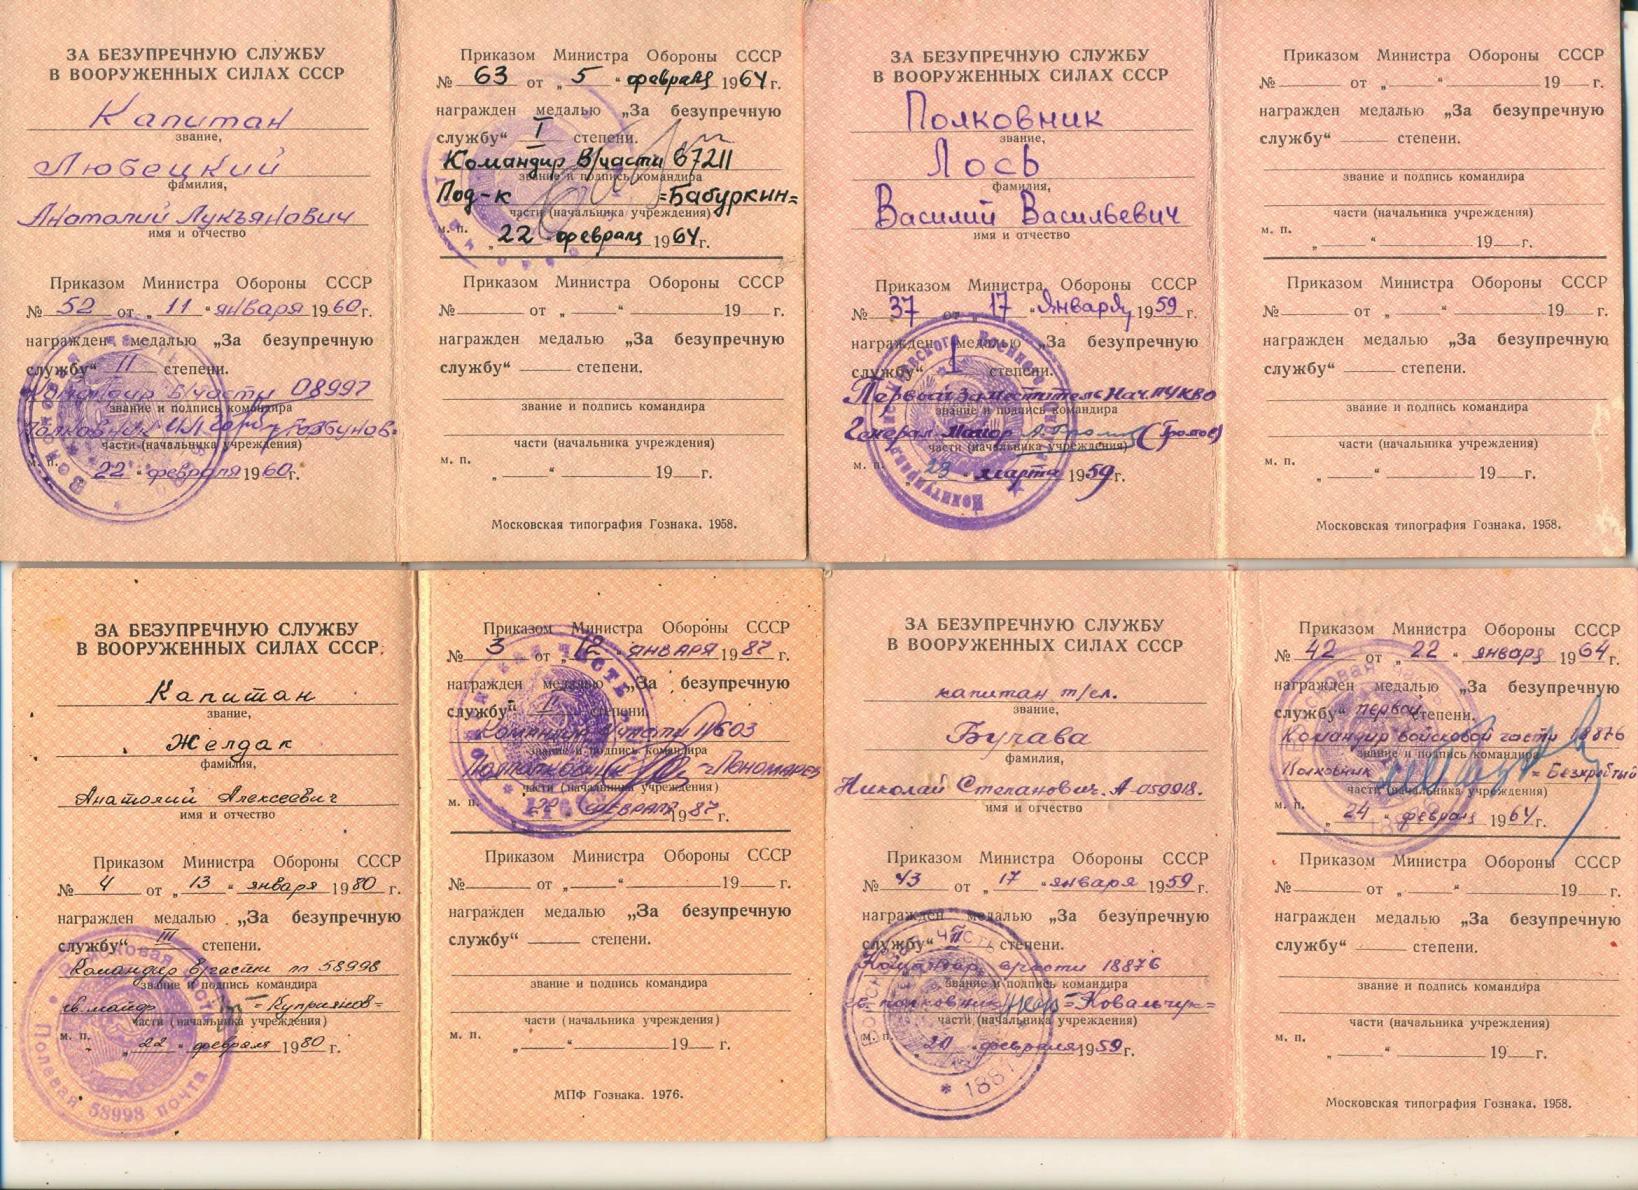 ЗА БЕЗУПРЕЧНУЮ СЛУЖБУ
В ВООРУЖЕННЫХ СИЛАХ СССР
Капитан
звание,
Любецкий
фамилия,
Анатолий Лукьянович
имя и отчество
Приказом Министра Обороны СССР
№ 52 от „ 11 “ января 1960 г.
награжден медалью „За безупречную
службу“ II степени.
Командир В/части 08997
звание и подпись командира
Полковник
части (начальника учреждения)
м. п. „ 22 “ февраля 1960 г.
Приказом Министра Обороны СССР
№ 63 от „ 5 “ февраля 1964 г.
награжден медалью „За безупречную
службу“ I степени.
Командир В/части 67211
звание и подпись командира
Под-к =Бабуркин=
части (начальника учреждения)
м. п. „ 22 “ февраля 1964 г.
Приказом Министра Обороны СССР
№ от „ “ 19 г.
награжден медалью „За безупречную
службу“ степени.
звание и подпись командира
части (начальника учреждения)
м. п. „ “ 19 г.
Московская типография Гознака. 1958.
ЗА БЕЗУПРЕЧНУЮ СЛУЖБУ
В ВООРУЖЕННЫХ СИЛАХ СССР
Полковник
звание,
Лось
фамилия,
Василий Васильевич
имя и отчество
Приказом Министра Обороны СССР
№ 37 от „ 17 “ Января 1959 г.
награжден медалью „За безупречную
службу“ I степени.
Первый Заместитель Нач.ПУКВО
звание и подпись командира
Генерал Майор (Громов)
части (начальника учреждения)
м. п. „ 23 “ марта 1959 г.
Приказом Министра Обороны СССР
№ от „ “ 19 г.
награжден медалью „За безупречную
службу“ степени.
звание и подпись командира
части (начальника учреждения)
м. п. „ “ 19 г.
Приказом Министра Обороны СССР
№ от „ “ 19 г.
награжден медалью „За безупречную
службу“ степени.
звание и подпись командира
части (начальника учреждения)
м. п. „ “ 19 г.
Московская типография Гознака. 1958.
ЗА БЕЗУПРЕЧНУЮ СЛУЖБУ
В ВООРУЖЕННЫХ СИЛАХ СССР.
Капитан
звание,
Желдак
фамилия,
Анатолий Алексеевич
имя и отчество
Приказом Министра Обороны СССР
№ 4 от „ 13 “ января 1980 г.
награжден медалью „За безупречную
службу“ III степени.
Командир в/части пп 58998
звание и подпись командира
гв. майор =Куприянов=
части (начальника учреждения)
м. п. „ 22 “ февраля 1980 г.
войсковая часть
Полевая почта 58998
Приказом Министра Обороны СССР
№ 3 от „ 12 “ января 1987 г.
награжден медалью „За безупречную
службу“ II степени.
Командир в/части 11603
звание и подпись командира
Подполковник =Пономарев
части (начальника учреждения)
м. п. „ 22 “ февраля 1987 г.
Приказом Министра Обороны СССР
№ от „ “ 19 г.
награжден медалью „За безупречную
службу“ степени.
звание и подпись командира
части (начальника учреждения)
м. п. „ “ 19 г.
МПФ Гознака. 1976.
ЗА БЕЗУПРЕЧНУЮ СЛУЖБУ
В ВООРУЖЕННЫХ СИЛАХ СССР
капитан т/сл.
звание,
Бучава
фамилия,
Николай Степанович. А-059918.
имя и отчество
Приказом Министра Обороны СССР
№ 43 от „ 17 “ января 1959 г.
награжден медалью „За безупречную
службу“ II степени.
Командир в/части 18876
звание и подпись командира
гв. полковник =Ковальчук=
части (начальника учреждения)
м. п. „ 20 “ февраля 1959 г.
Приказом Министра Обороны СССР
№ 42 от „ 22 “ января 1964 г.
награжден медалью „За безупречную
службу“ первой степени.
Командир войсковой части 18876
звание и подпись командира
Полковник =Безкровный
части (начальника учреждения)
м. п. „ 24 “ февраля 1964 г.
Приказом Министра Обороны СССР
№ от „ “ 19 г.
награжден медалью „За безупречную
службу“ степени.
звание и подпись командира
части (начальника учреждения)
м. п. „ “ 19 г.
Московская типография Гознака. 1958.